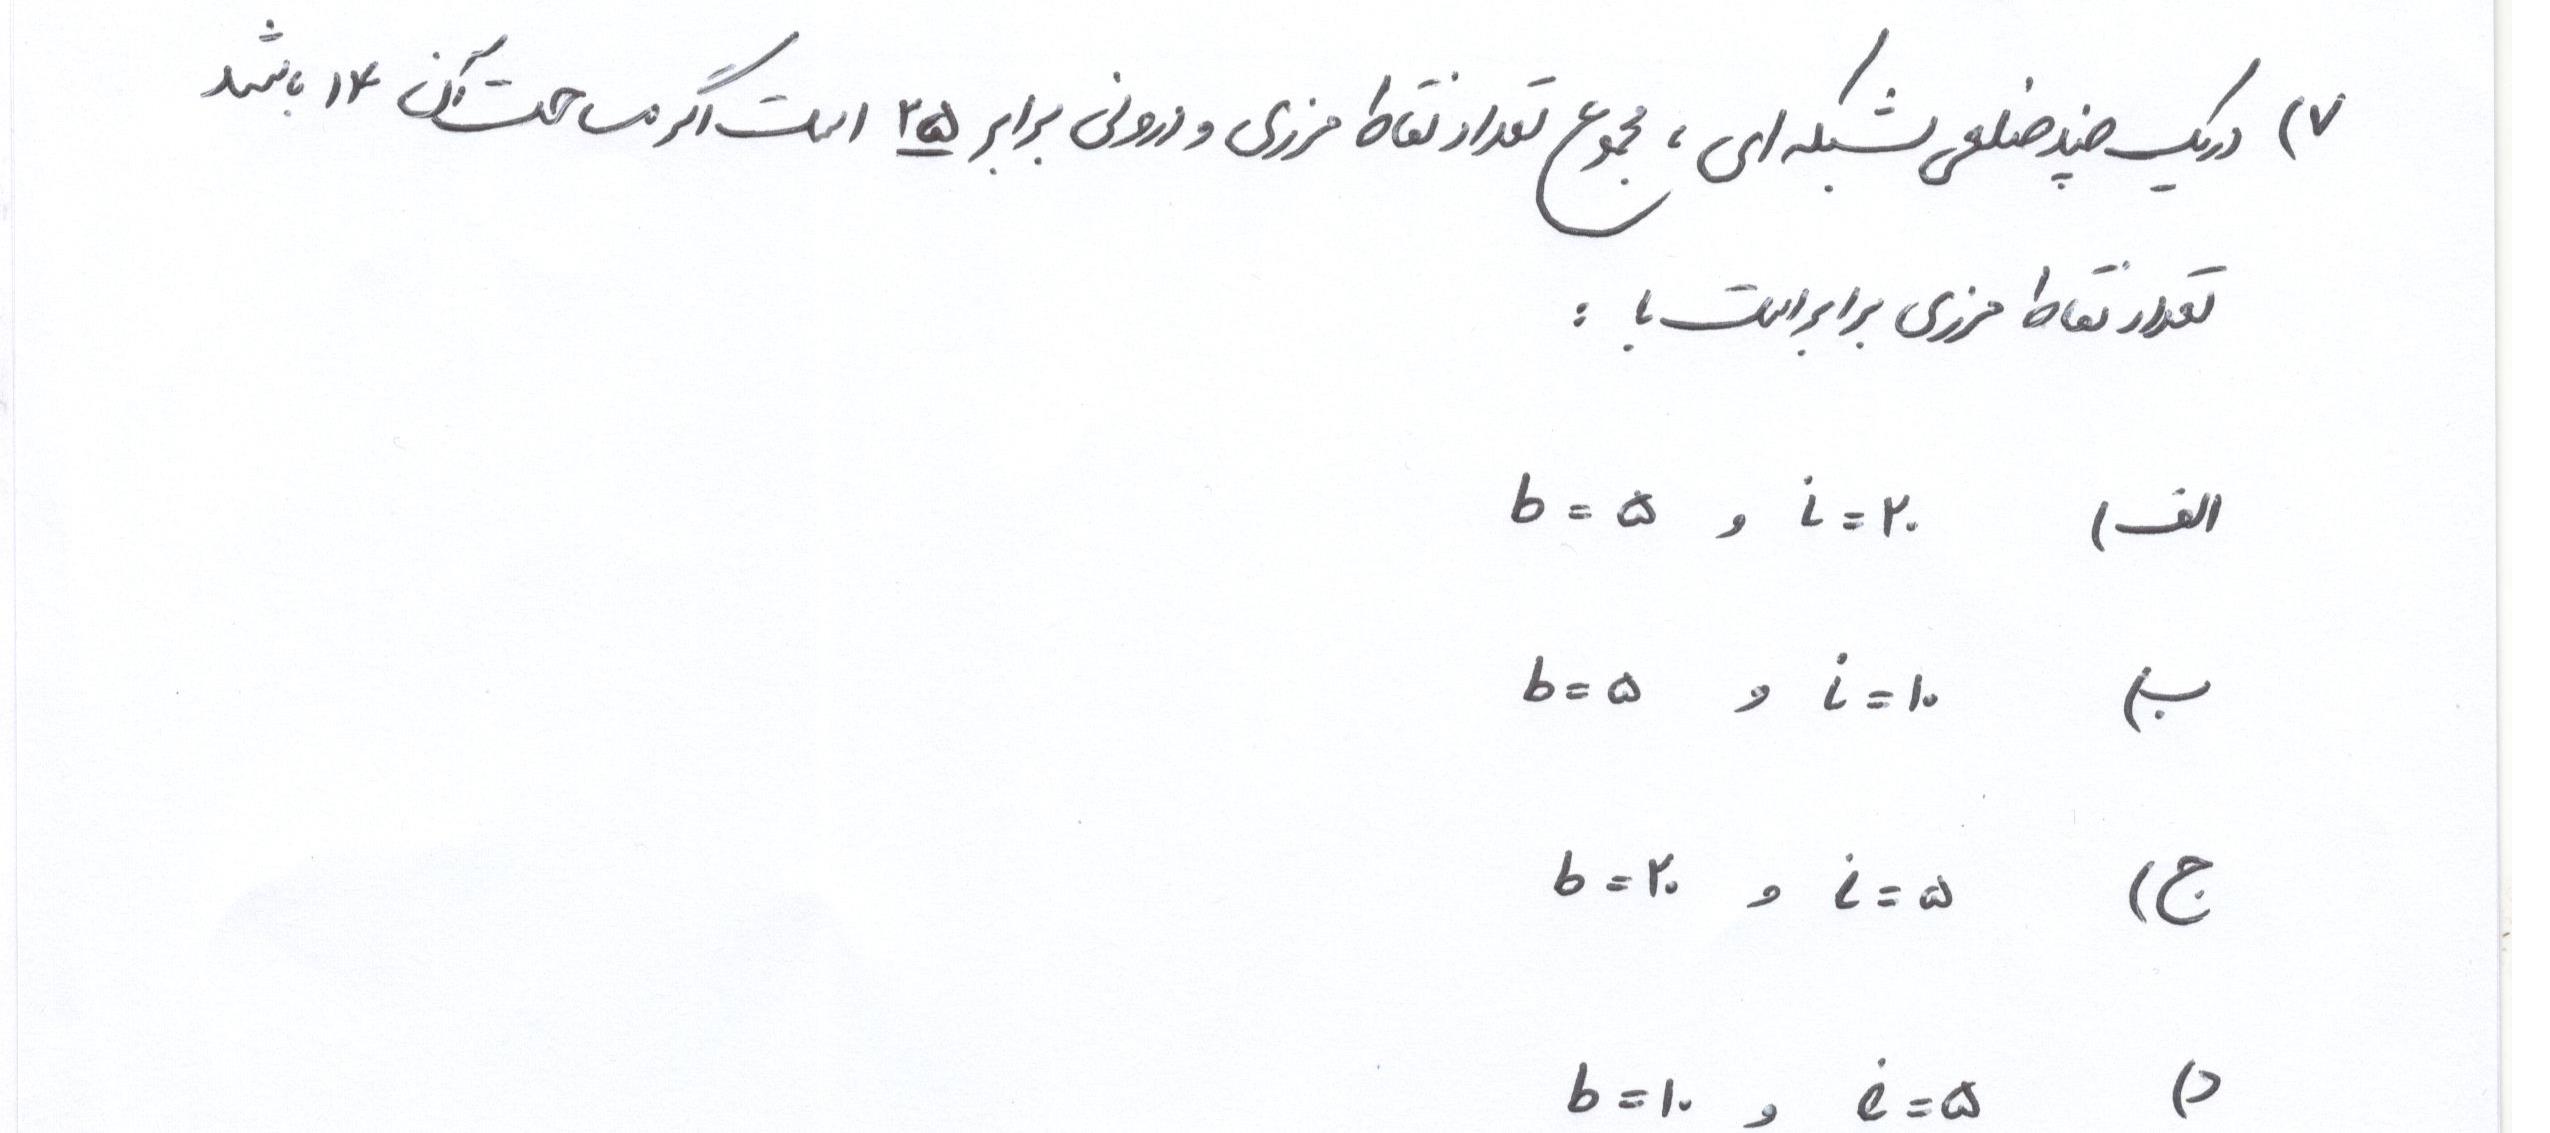 ۷) در یک چند ضلعی شبکه ای ، مجموع تعداد نقاط مرزی و درونی برابر ۲۵ است اگر مساحت آن ۱۴ باشد
تعداد نقاط مرزی برابر است با :
الف) i = ۲۰ و b = ۵
ب) i = ۱۰ و b = ۵
ج) i = ۵ و b = ۲۰
د) i = ۵ و b = ۱۰